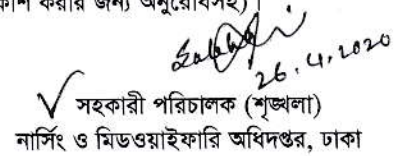 করার জন্য অনুরোধসহ)।
26.4.2020
সহকারী পরিচালক (শৃঙ্খলা)
নার্সিং ও মিডওয়াইফারি অধিদপ্তর, ঢাকা